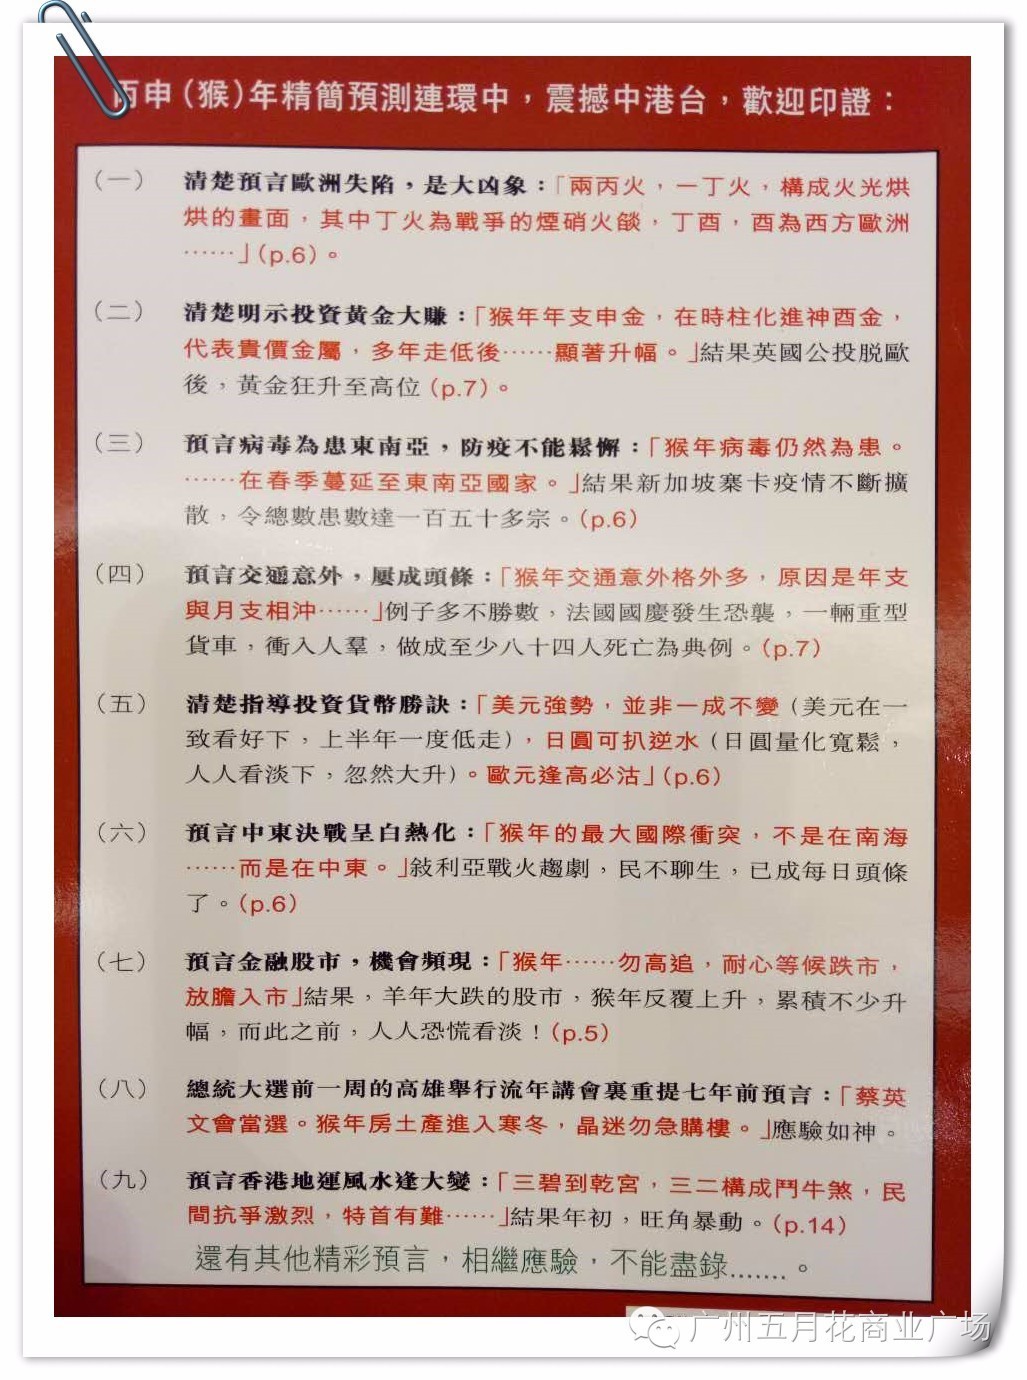 丙申（猴）年精簡預測連環中，震撼中港台，歡迎印證：
（一） 清楚預言歐洲失陷，是大凶象：「兩丙火，一丁火，構成火光烘
烘的畫面，其中丁火為戰爭的煙硝火燄，丁酉，酉為西方歐洲
⋯⋯」（p.6）。
（二） 清楚明示投資黃金大賺：「猴年年支申金，在時柱化進神酉金，
代表貴價金屬，多年走低後⋯⋯顯著升幅。」結果英國公投脫歐
後，黃金狂升至高位（p.7）。
（三） 預言病毒為患東南亞，防疫不能鬆懈：「猴年病毒仍然為患。
⋯⋯在春季蔓延至東南亞國家。」結果新加坡寨卡疫情不斷擴
散，令總數患數達一百五十多宗。（p.6）
（四） 預言交通意外，屢成頭條：「猴年交通意外格外多，原因是年支
與月支相沖⋯⋯」例子多不勝數，法國國慶發生恐襲，一輛重型
貨車，衝入人羣，做成至少八十四人死亡為典例。（p.7）
（五） 清楚指導投資貨幣勝訣：「美元強勢，並非一成不變（美元在一
致看好下，上半年一度低走），日圓可扒逆水（日圓量化寬鬆，
人人看淡下，忽然大升）。歐元逢高必沽」（p.6）
（六） 預言中東決戰呈白熱化：「猴年的最大國際衝突，不是在南海
⋯⋯而是在中東。」敍利亞戰火趨劇，民不聊生，已成每日頭條
了。（p.6）
（七） 預言金融股市，機會頻現：「猴年⋯⋯勿高追，耐心等候跌市，
放膽入市」結果，羊年大跌的股市，猴年反覆上升，累積不少升
幅，而此之前，人人恐慌看淡！（p.5）
（八） 總統大選前一周的高雄舉行流年講會裏重提七年前預言：「蔡英
文會當選。猴年房土產進入寒冬，晶迷勿急購樓。」應驗如神。
（九） 預言香港地運風水逢大變：「三碧到乾宮，三二構成鬥牛煞，民
間抗爭激烈，特首有難⋯⋯」結果年初，旺角暴動。（p.14）
還有其他精彩預言，相繼應驗，不能盡錄.......。
广州五月花商业广场